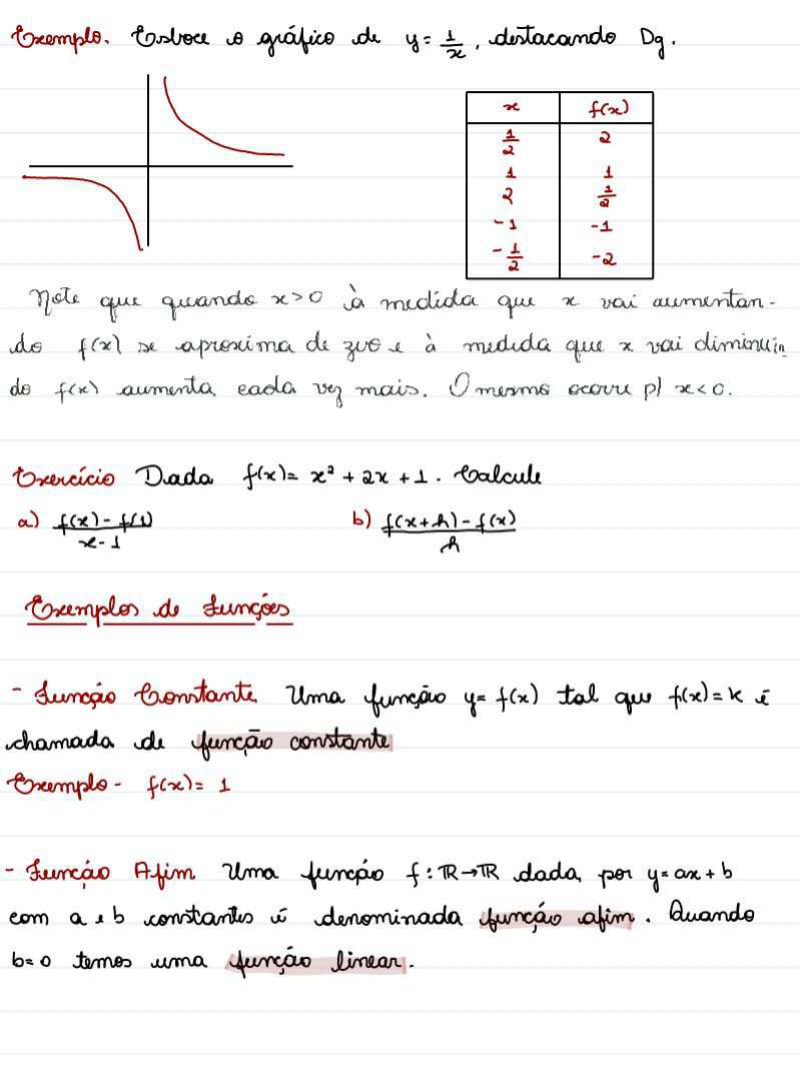 Exemplo. Esboce o gráfico de y = 1/x, destacando Dg.
x f(x)
1/2 2
1 1
2 1/2
-1 -1
-1/2 -2
Note que quando x>0 à medida que x vai aumentan-
do f(x) se aproxima de zero e à medida que x vai diminuin
do f(x) aumenta cada vez mais. O mesmo ocorre p/ x<0.
Exercício Dada f(x)= x² + 2x + 1. Calcule
a) f(x) - f(1) / x - 1 b) f(x+h) - f(x) / h
Exemplos de Funções
- Função Constante Uma função y= f(x) tal que f(x)= k é
chamada de função constante
Exemplo - f(x)= 1
- Função Afim Uma função f: ℝ→ℝ dada por y= ax + b
com a e b constantes é denominada função afim. Quando
b=0 temos uma função linear.